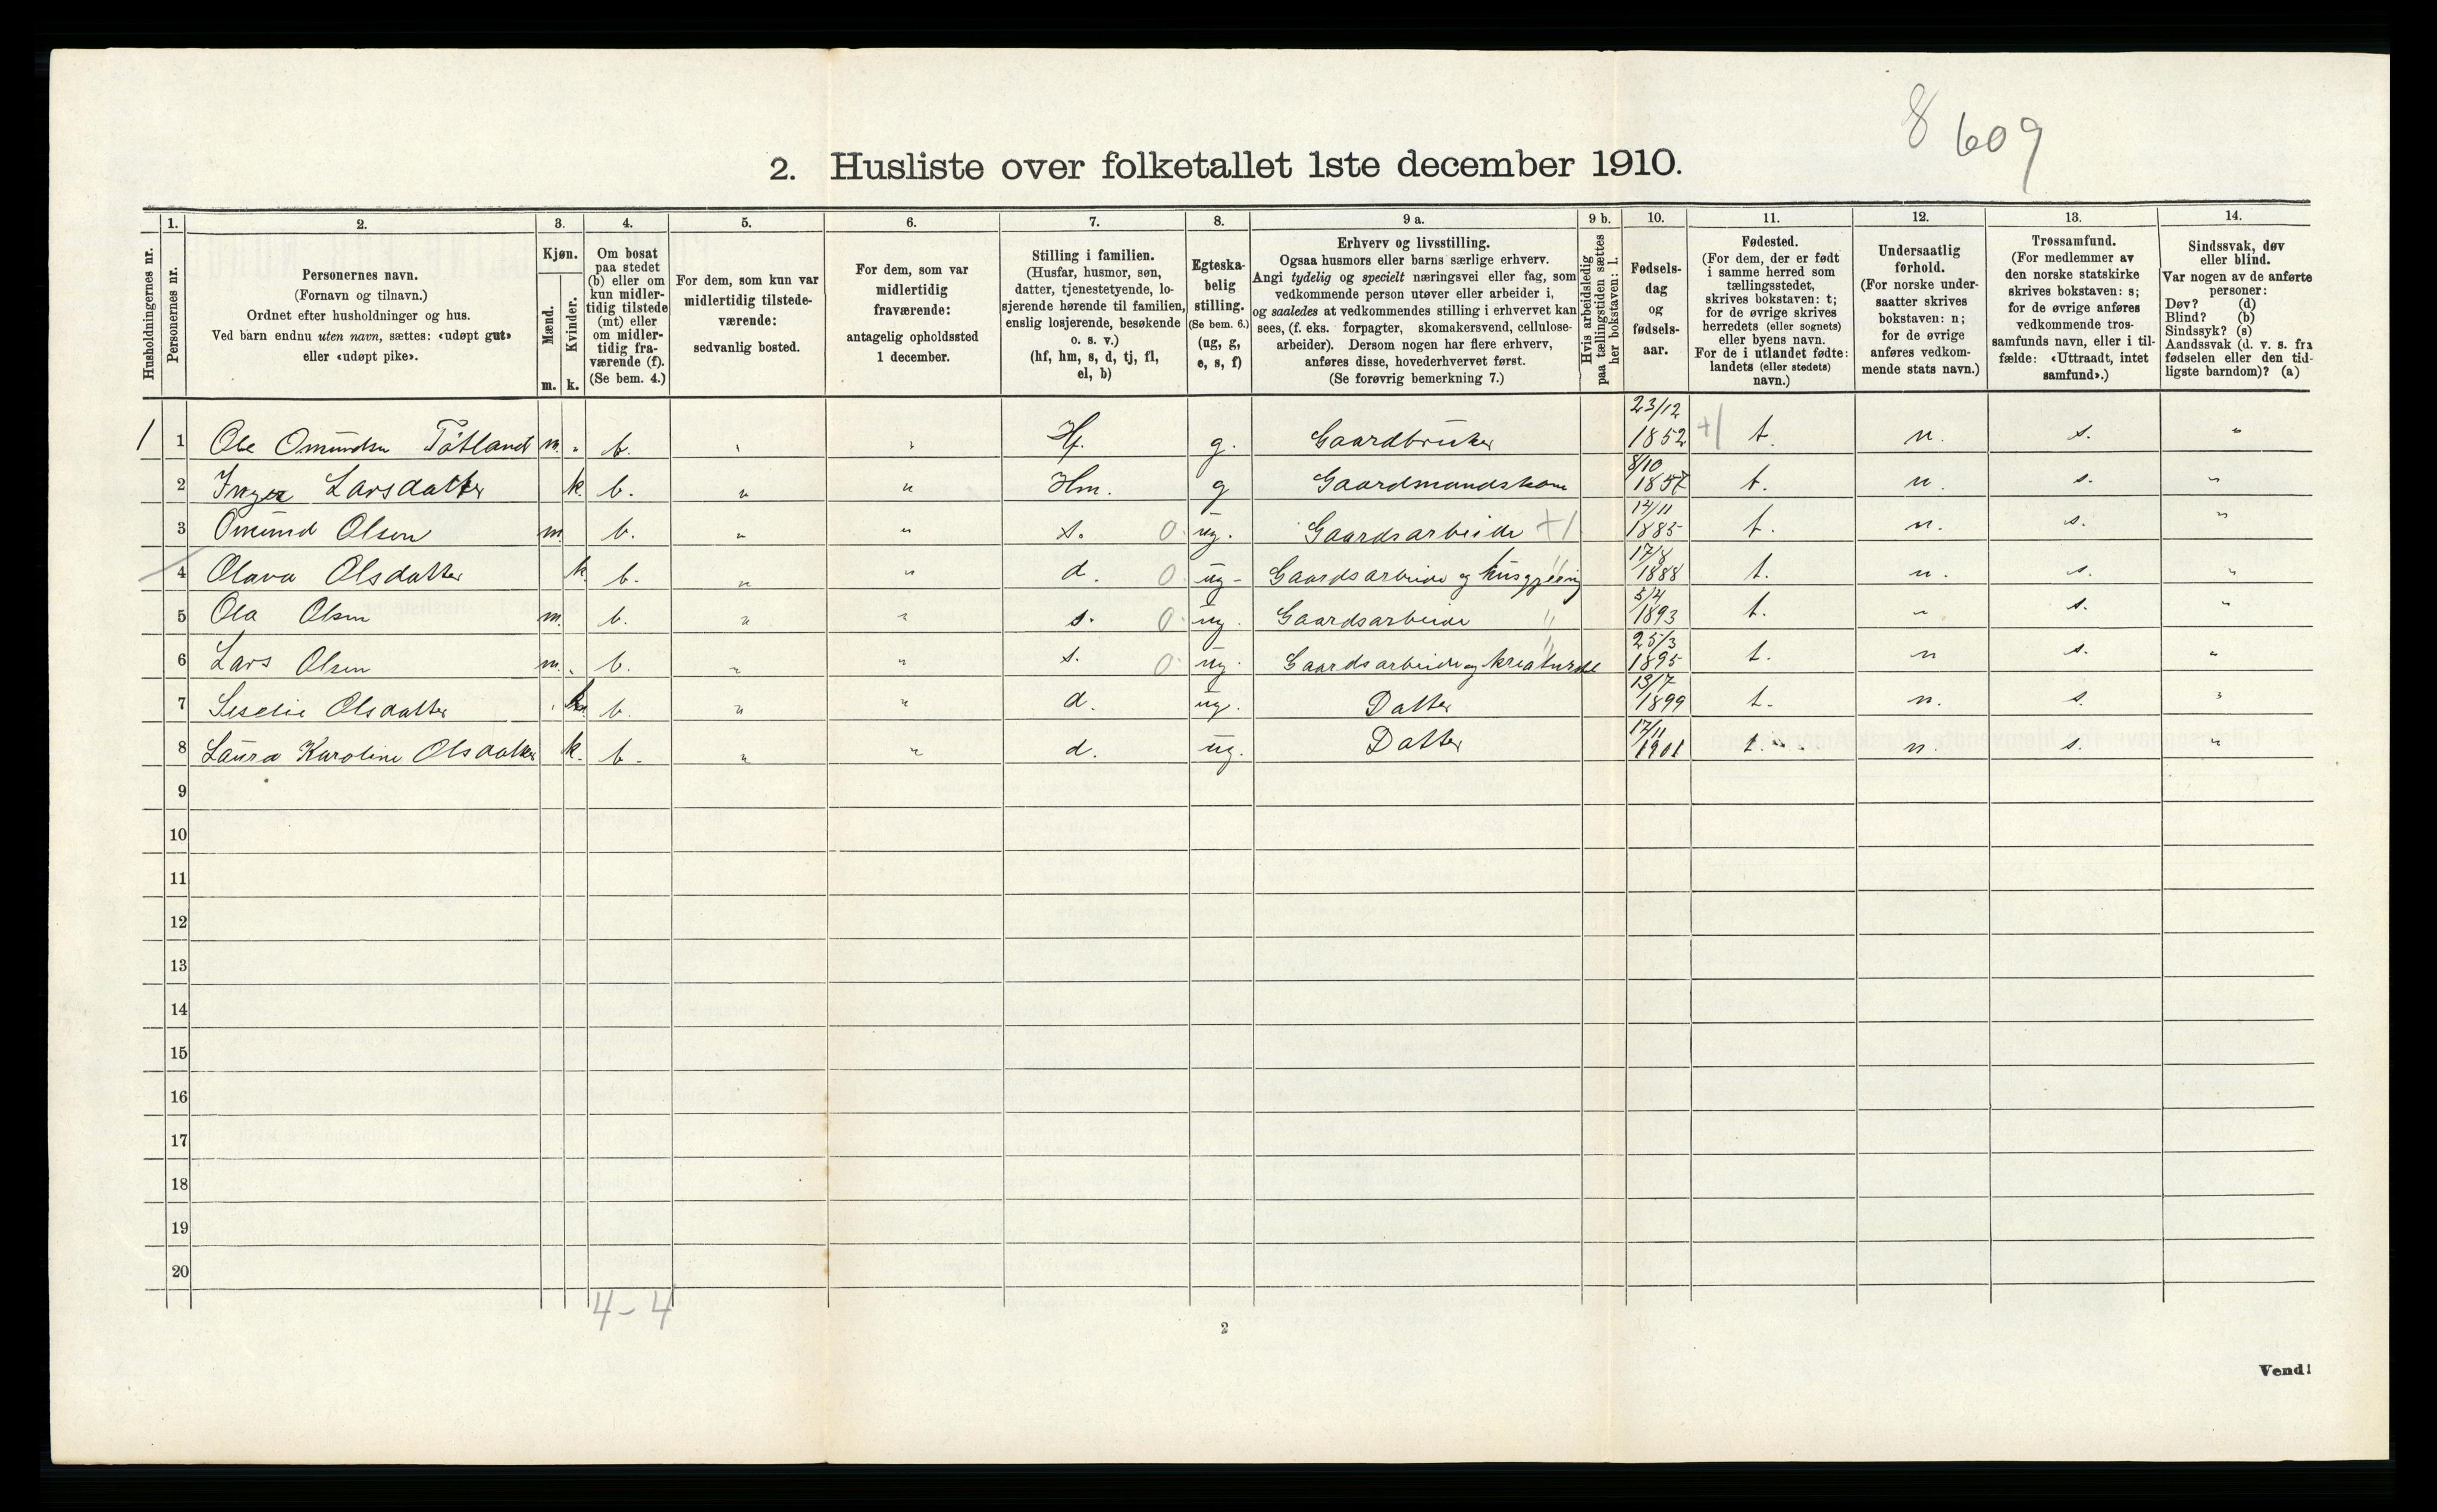 8 609
2. Husliste over folketallet 1ste december 1910.
1. 2. 3. 4. 5. 6. 7. 8. 9 a. 9 b. 10. 11. 12. 13. 14.
Husholdningernes nr.
Personernes nr.
Personernes navn.
(Fornavn og tilnavn.)
Ordnet efter husholdninger og hus.
Ved barn endnu uten navn, sættes: «udøpt gut»
eller «udøpt pike».
Kjøn.
Mænd.
Kvinder.
m. k.
Om bosat
paa stedet
(b) eller om
kun midler-
tidig tilstede
(mt) eller
om midler-
tidig fra-
værende (f).
(Se bem. 4.)
For dem, som kun var
midlertidig tilstede-
værende:
sedvanlig bosted.
For dem, som var
midlertidig
fraværende:
antagelig opholdssted
1 december.
Stilling i familien.
(Husfar, husmor, søn,
datter, tjenestetyende, lo-
sjerende hørende til familien,
enslig losjerende, besøkende
o. s. v.)
(hf, hm, s, d, tj, fl,
el, b)
Egteska-
belig
stilling.
(Se bem. 6.)
(ug, g,
e, s, f)
Erhverv og livsstilling.
Ogsaa husmors eller barns særlige erhverv.
Angi tydelig og specielt næringsvei eller fag, som
vedkommende person utøver eller arbeider i,
og saaledes at vedkommendes stilling i erhvervet kan
sees, (f. eks. forpagter, skomakersvend, cellulose-
arbeider). Dersom nogen har flere erhverv,
anføres disse, hovederhvervet først.
(Se forøvrig bemerkning 7.)
Hvis arbeidsledig
paa tællingstiden sættes
her bokstaven: l.
Fødsels-
dag
og
fødsels-
aar.
Fødested.
(For dem, der er født
i samme herred som
tællingsstedet,
skrives bokstaven: t;
for de øvrige skrives
herredets (eller sognets)
eller byens navn.
For de i utlandet fødte:
landets (eller stedets)
navn.)
Undersaatlig
forhold.
(For norske under-
saatter skrives
bokstaven: n;
for de øvrige
anføres vedkom-
mende stats navn.)
Trossamfund.
(For medlemmer av
den norske statskirke
skrives bokstaven: s;
for de øvrige anføres
vedkommende tros-
samfunds navn, eller i til-
fælde: «Uttraadt, intet
samfund».)
Sindssvak, døv
eller blind.
Var nogen av de anførte
personer:
Døv? (d)
Blind? (b)
Sindssyk? (s)
Aandssvak (d. v. s. fra
fødselen eller den tid-
ligste barndom)? (a)
1 1 Ole Omundsen Tåtland m. „ b. „ „ Hf. g. Gaardbruker 23/12 1852 +1 t. n. s. „
2 Inger Larsdatter k. b. „ „ Hm. g Gaardmandskone 8/10 1857 t. n. s. „
3 Omund Olsen m. b. „ „ s. 0 ug. Gaardsarbeide +1 14/11 1885 t. n. s. „
4 Olava Olsdatter k b. „ „ d. 0 ug - Gaardsarbeide og husgjerning „ 17/8 1888 t. n. s. „
5 Ola Olsen m. b. „ „ s. 0 ug. Gaardsarbeide „ 5/4 1893 t. „ s. „
6 Lars Olsen m. „ b. „ „ s. 0 ug. Gaardsarbeide og kreaturstel „ 25/3 1895 t. n s. „
7 Seselie Olsdatter k. b. „ „ d. ug. Datter 13/7 1899 t. n. s. „
8 Laura Karoline Olsdatter k. b. „ „ d. ug. Datter 17/11 1901 t. n. s. „
9
10
11
12
13
14
15
16
17
18
19
20
4 - 4
2
Vend!